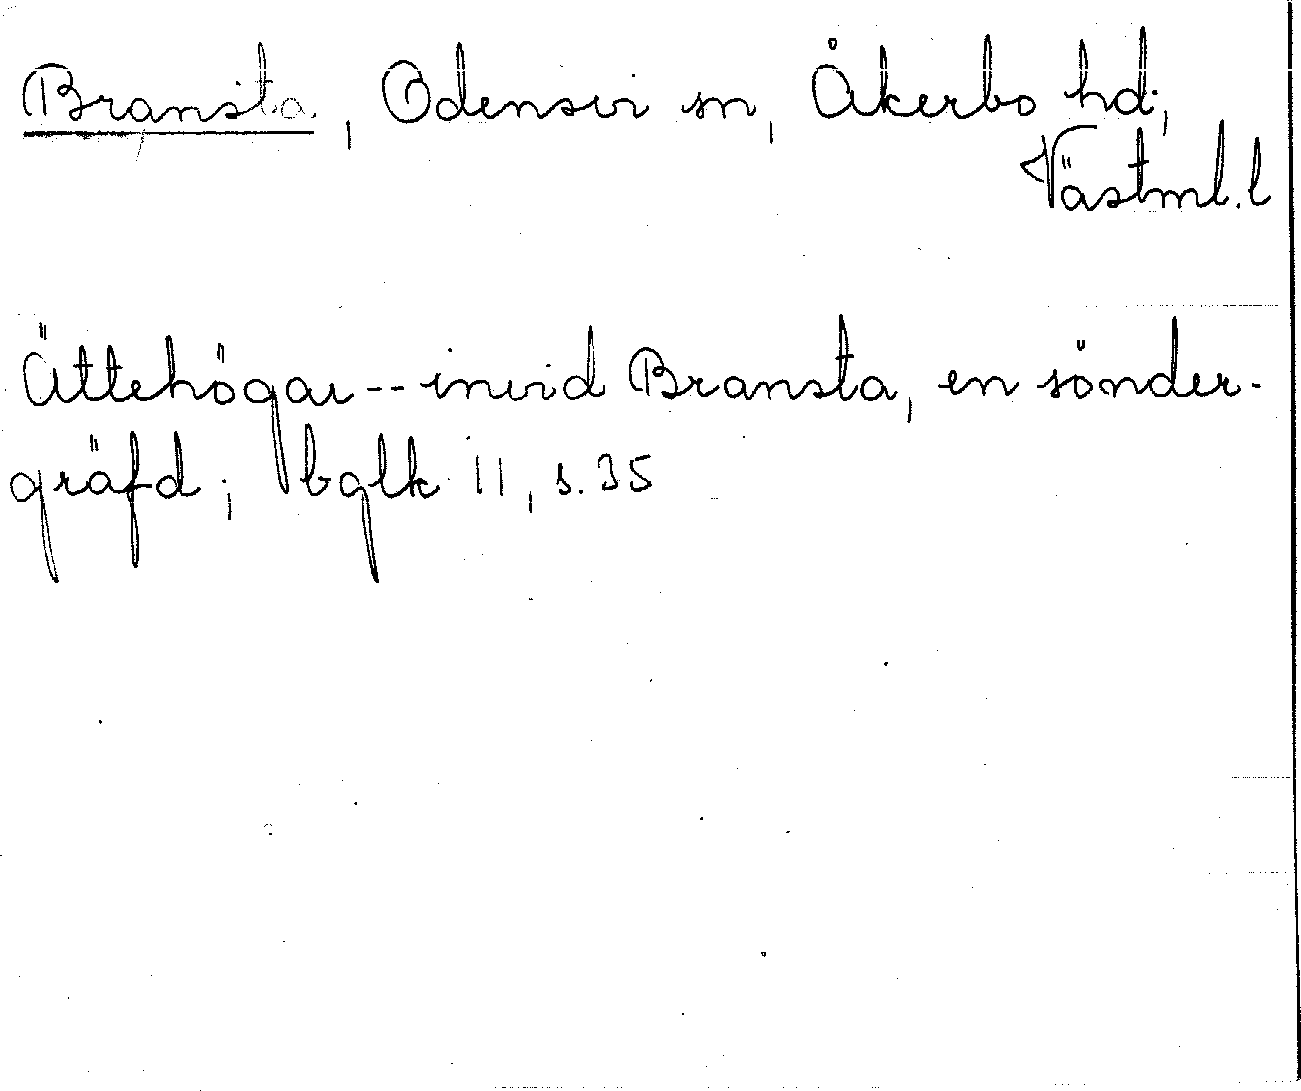 Bransta, Odensvi sn, Åkerbo hd,
Västml. l
Ättehögar -- invid Bransta, en sönder-
gräfd; bglk 11, s. 35